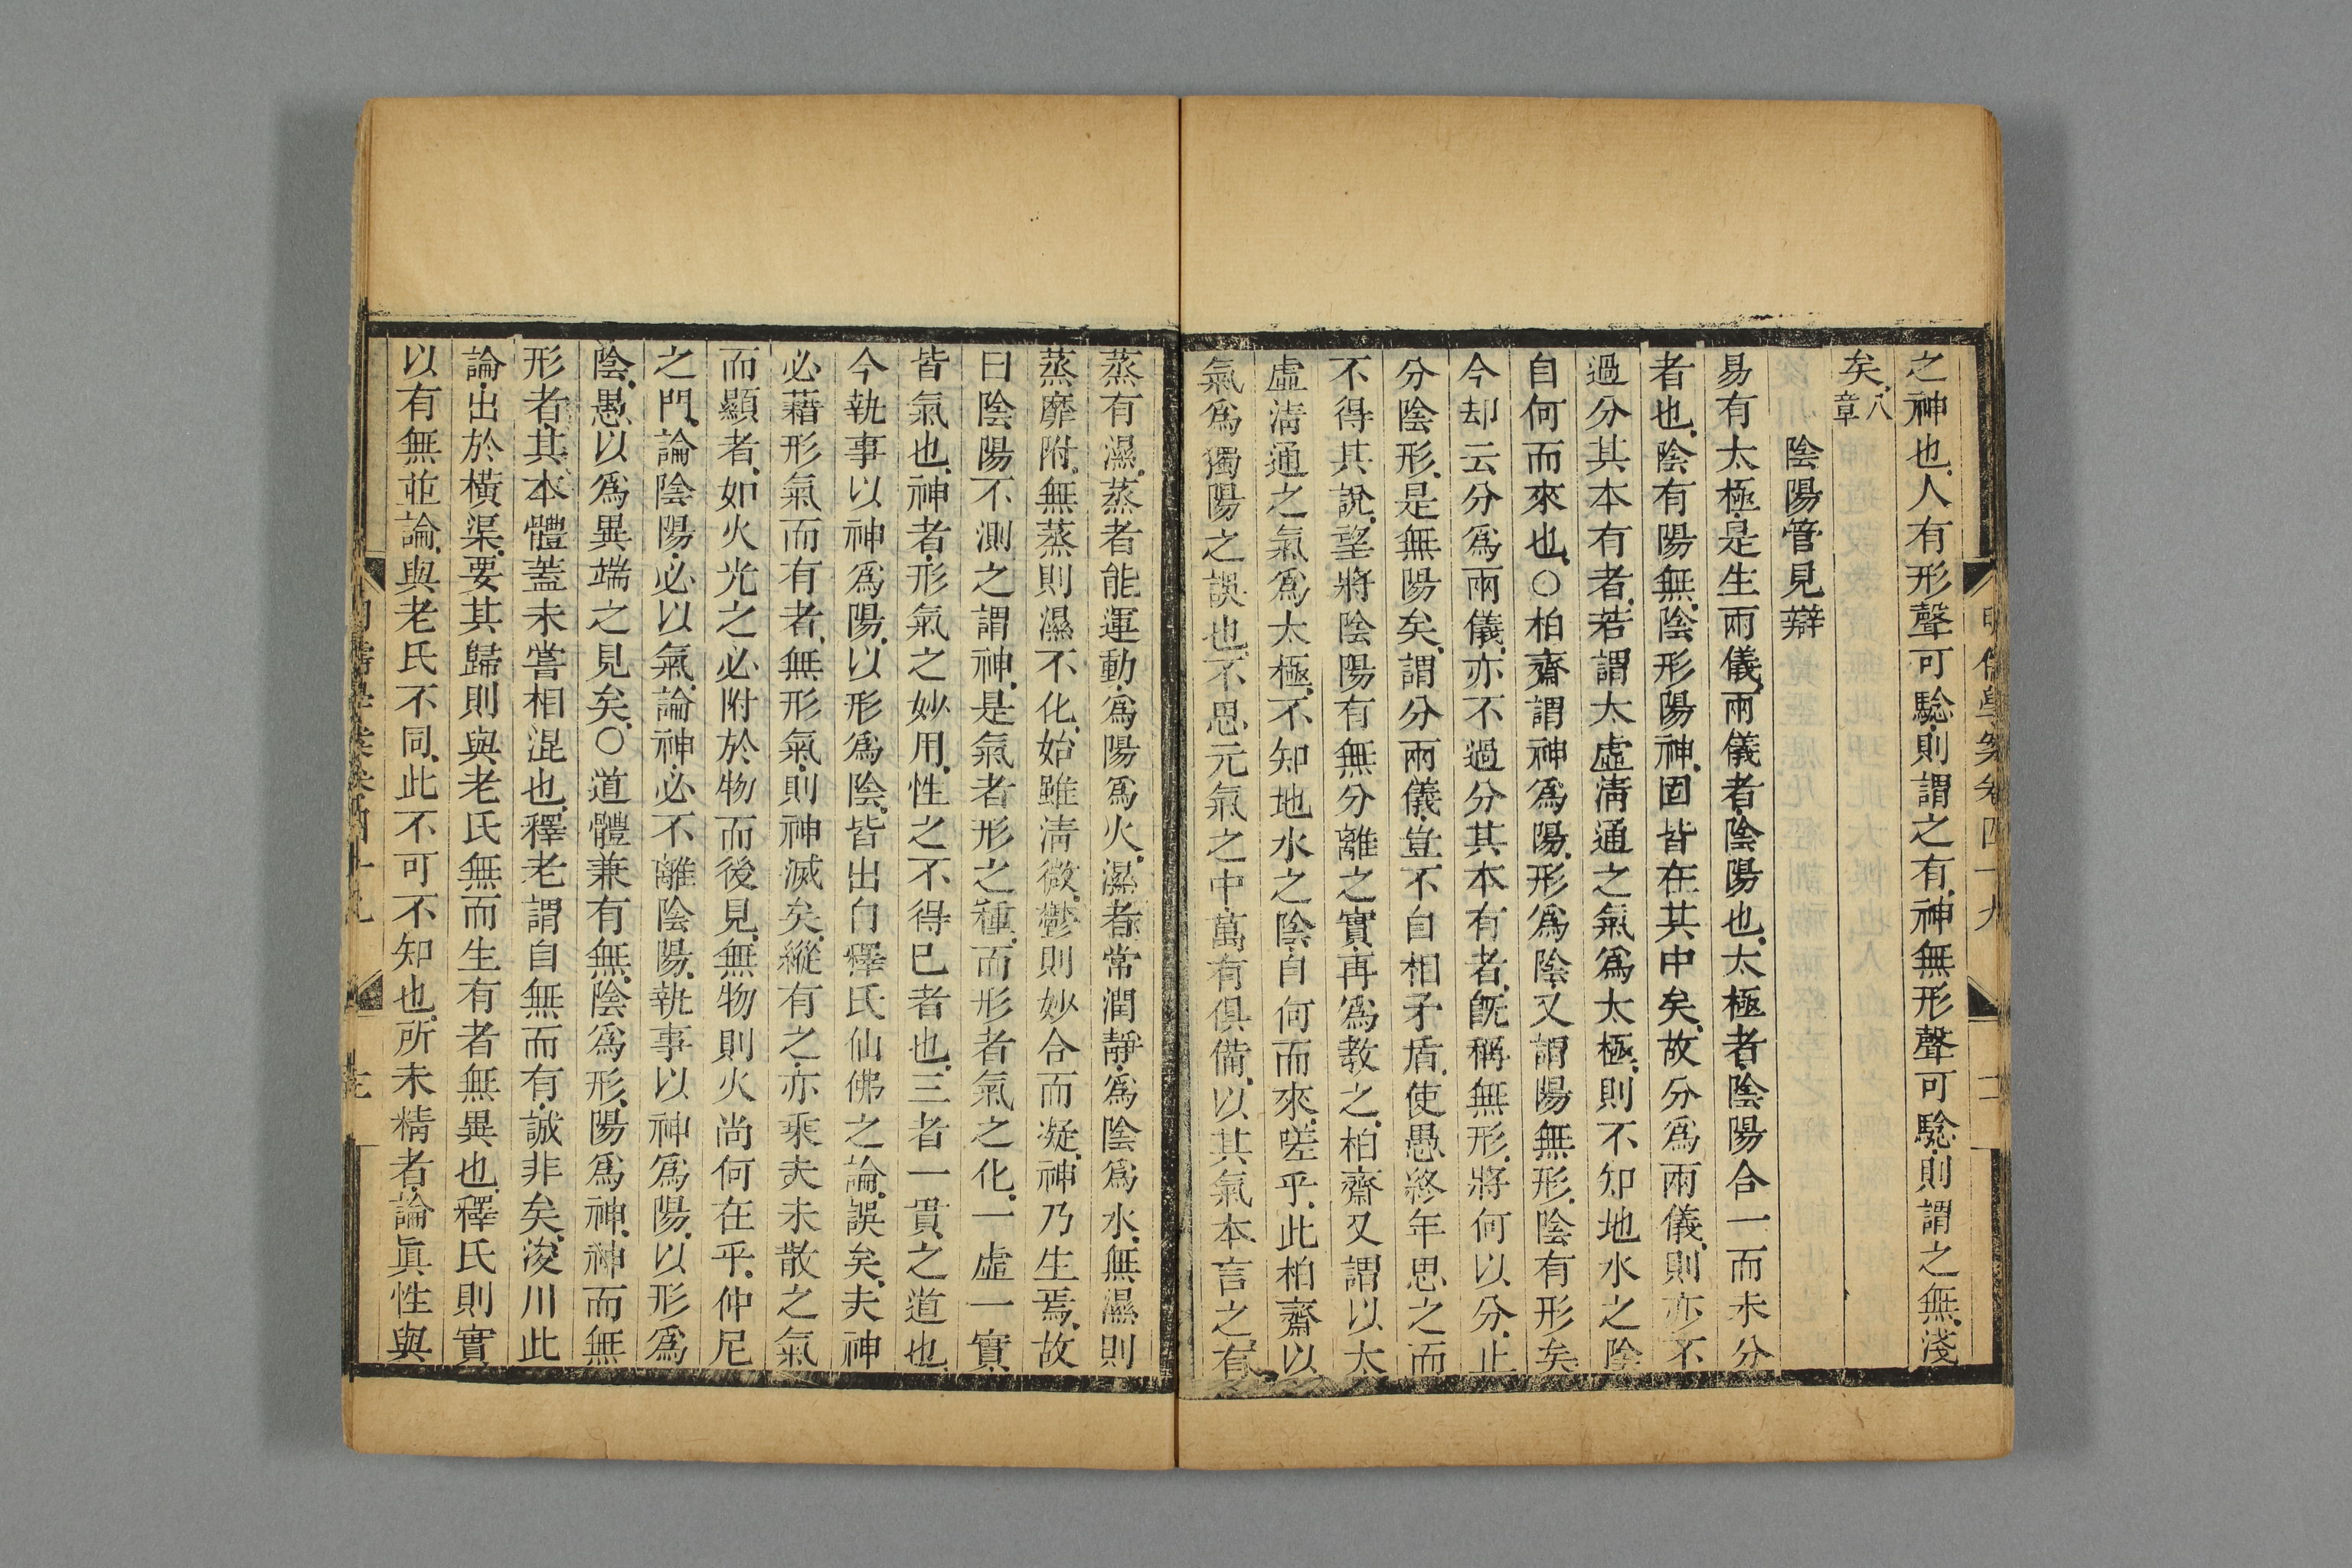 明儒學案卷四十九 二
之神也人有形聲可騐則謂之有神無形聲可騐則謂之無淺
矣八章
陰陽管見辯
易有太極是生兩儀兩儀者陰陽也太極者陰陽合一而未分
者也陰有陽無陰形陽神固皆在其中矣故分爲兩儀則亦不
過分其本有者若謂太虛清通之氣爲太極則不知地水之陰
自何而來也○柏齋謂神爲陽形爲陰又謂陽無形陰有形矣
今却云分爲兩儀亦不過分其本有者旣稱無形將何以分止
分陰形是無陽矣謂分兩儀豈不自相矛盾使愚終年思之而
不得其說望將陰陽有無分離之實再爲教之柏齋又謂以太
虛清通之氣爲太極不知地水之陰自何而來嗟乎此柏齋以
氣爲獨陽之誤也不思元氣之中萬有俱備以其氣本言之有
蒸有濕蒸者能運動爲陽爲火濕者常潤靜爲陰爲水無濕則
蒸靡附無蒸則濕不化始雖清微鬱則妙合而凝神乃生焉故
曰陰陽不測之謂神是氣者形之種而形者氣之化一虛一實
皆氣也神者形氣之妙用性之不得已者也三者一貫之道也
今執事以神爲陽以形爲陰皆出自釋氏仙佛之論誤矣夫神
必藉形氣而有者無形氣則神滅矣縱有之亦乘夫未散之氣
而顯者如火光之必附於物而後見無物則火尚何在乎仲尼
之門論陰陽必以氣論神必不離陰陽執事以神爲陽以形爲
陰愚以爲異端之見矣○道體兼有無陰爲形陽爲神神而無
形者其本體蓋未嘗相混也釋老謂自無而有誠非矣浚川此
論出於橫渠要其歸則與老氏無而生有者無異也釋氏則實
以有無並論與老氏不同此不可不知也所未精者論眞性與